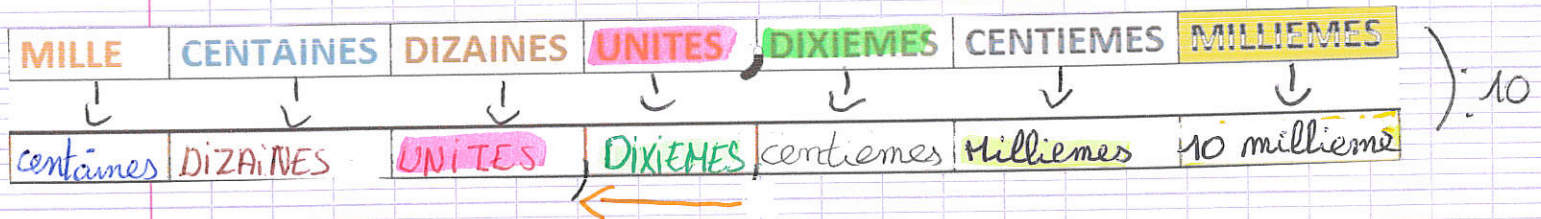 MILLE CENTAINES DIZAINES UNITES , DIXIEMES CENTIEMES MILLIEMES
: 10
centaines DIZAINES UNITES , DIXIEMES centiemes Milliemes 10 millieme